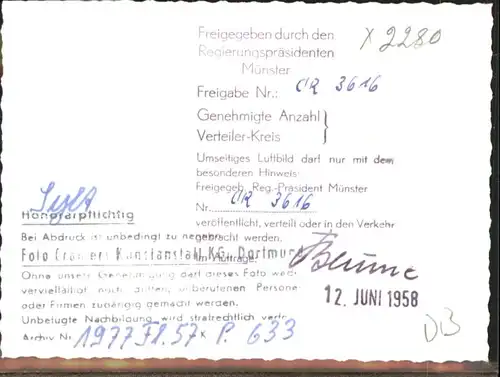 Freigegeben durch den
Regierungspräsidenten
Münster
x 2280
Freigabe Nr.: CR 3616
Genehmigte Anzahl
Verteiler-Kreis
Umseitiges Luftbild darf nur mit dem
besonderen Hinweis:
Freigegeb. Reg.-Präsident Münster
Nr. CR 3616
veröffentlicht, verteilt oder in den Verkehr
gebracht werden.
Im Auftrage:
Blume
12. JUNI 1958
Sylt
Honorarpflichtig
Bei Abdruck ist unbedingt zu nennen
Foto Cramers Kunstanstalt KG, Dortmund
Ohne unsere Genehmigung darf dieses Foto weder
vervielfältigt noch dritten unberufenen Personen
oder Firmen zugängig gemacht werden.
Unbefugte Nachbildung wird strafrechtlich verfr
Archiv Nr. 1977 Fl. 57 x P. 633
DB